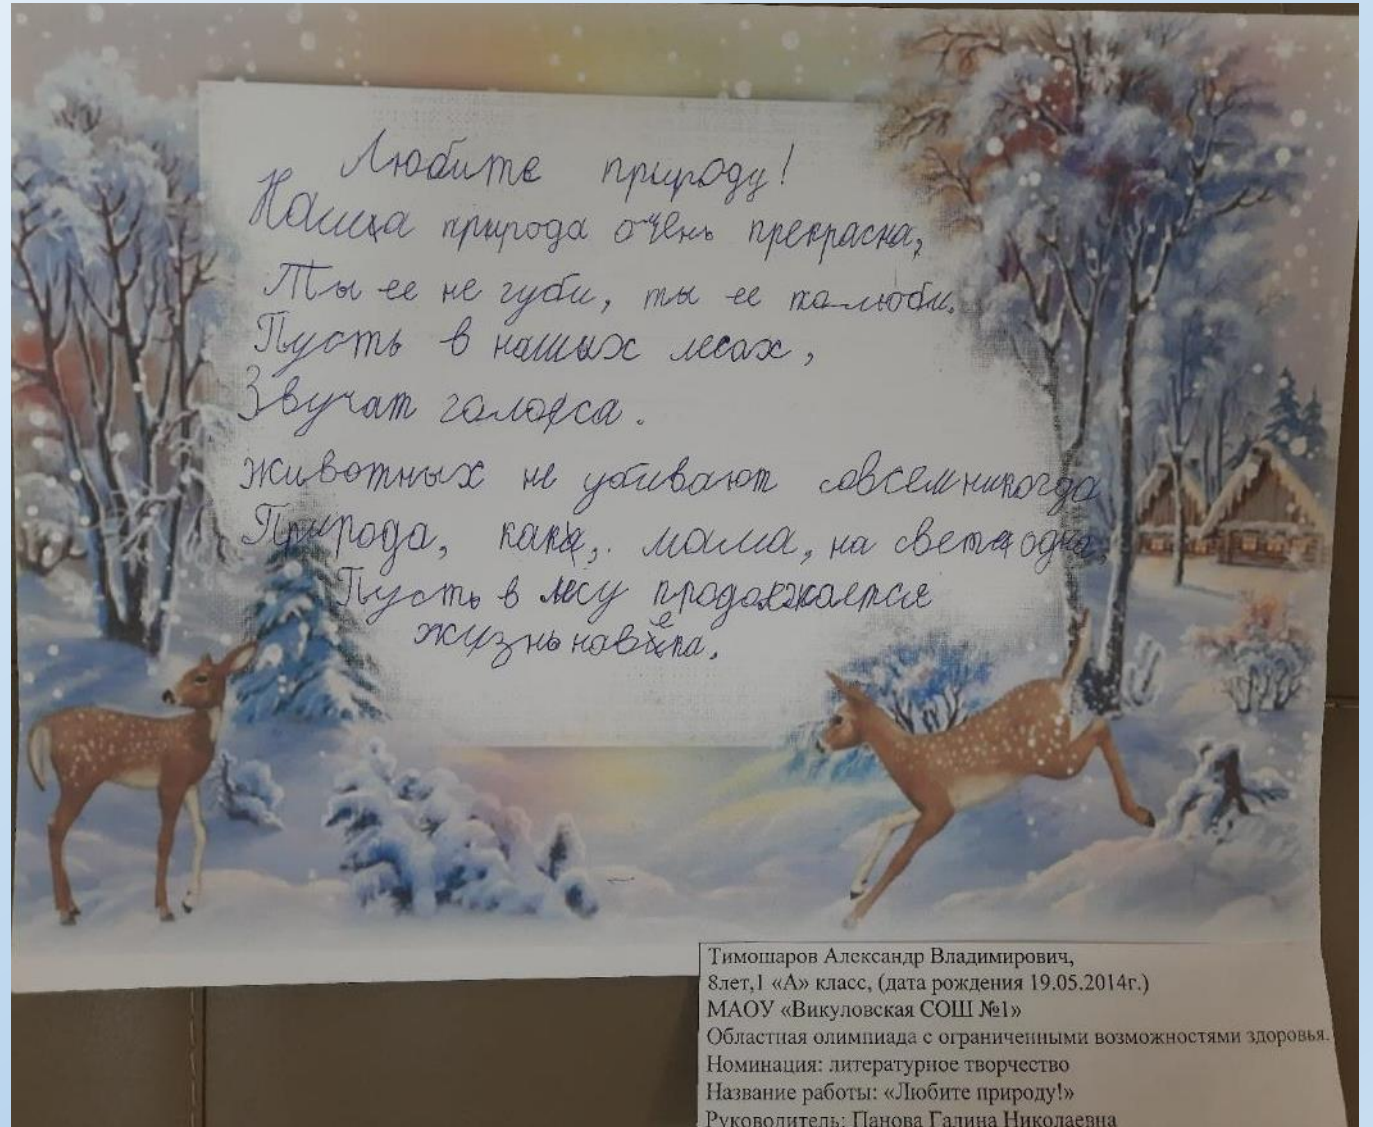 Любите природу!
Наша природа очень прекрасна,
Ты ее не губи, ты ее полюби.
Пусть в наших лесах,
Звучат голоса.
животных не убивают совсем никогда
Природа, как, мама, на свете одна,
Пусть в лесу продолжается
жизнь навека.
Тимошаров Александр Владимирович,
8лет,1 «А» класс, (дата рождения 19.05.2014г.)
МАОУ «Викуловская СОШ №1»
Областная олимпиада с ограниченными возможностями здоровья.
Номинация: литературное творчество
Название работы: «Любите природу!»
Руководитель: Панова Галина Николаевна